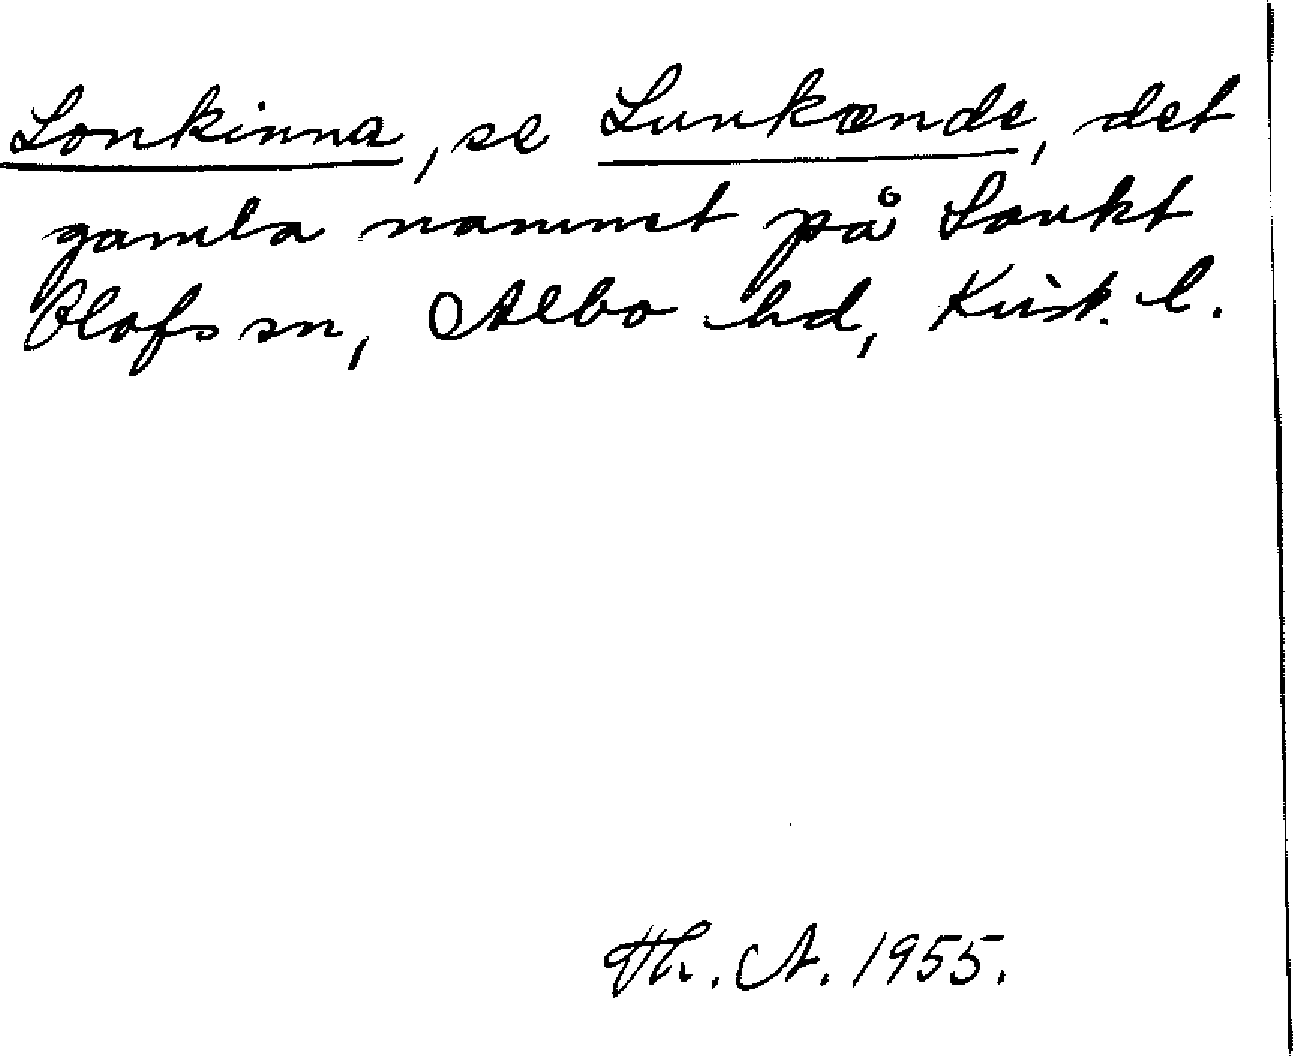 Lonkinna, se Lunkænde, det
gamla namnet på Sankt
Olofs sn, Albo hd, Krist. l.
Th. A. 1955.